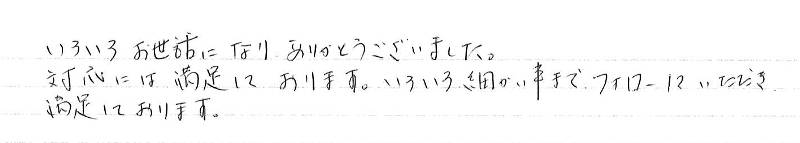 いろいろお世話になりありがとうございました。
対応には満足しております。いろいろ細かい事までフォローしていただき
満足しております。